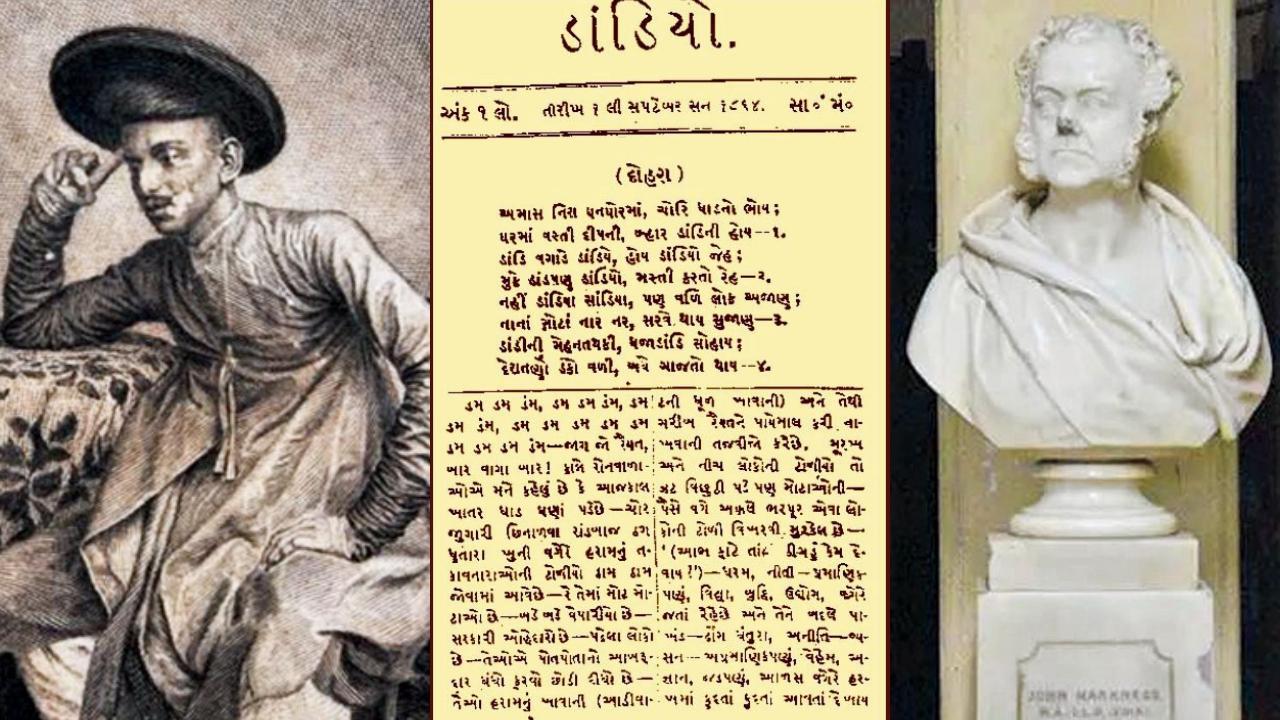 ડાંડિયો.
અંક ૧ લો. તારીખ ૧ લી સપટેંબર સન ૧૮૬૪. સા૦ મં૦
(દોહરા)
અમાસ નિશા ઘનઘોરમાં, ચોરિ ધાડનો ભોય;
ઘરમાં વસ્તી દીપની, બ્હાર ડાંડિની હોય--૧.
ડાંડિ વગાડે ડાંડિયે, હોય ડાંડિયો જેહ;
મુકે ડાંડપણુ ડાંડિયો, મસ્તી કરતો રેહ—૨.
નહીં ડાંડિયા સાંડિયા, પણ વળિ લોક અજાણ;
નાનાં મ્હોટાં નાર નર, સરવે થાય સુજાણ—૩.
ડાંડીની મેહનતથકી, ધજાડાંડિ સોહાય;
દેશતણો ડંકો વળી, બધે ગાજતો થાય--૪.
ડમ ડમ ડંમ, ડમ ડમ ડંમ, ડમ
ડમ ડંમ, ડમ ડમ ડમ ડમ ડમ
ડમ ડમ ડમ ડંમ—જાગ જો રૈયત,
બાર વાગા બાર! કાલે રોનવાળા-
ઓએ મને કહેલું છે કે આજકાલ
ખાતર ધાડ ઘણાં પડેછે—ચોર
જુગારી છિનાળવા રાંડબાજ ઠગ
ધુતારા ખુની વગેરે હરામનું ત-
કાવનારાઓની ટોળીયો ઠામ ઠામ
જોવામાં આવેછે—રે તેમાં મોટ મો-
ટાઓ છે—બડે બડે વેપારીયો છે—
સરકારી ઓહેદારો છે—પહેલા લોકો
છે—તેઓએ પોતપોતાનો આબરૂ-
દાર ધંધો કરવો છોડી દીધો છે—
તેઓ હરામનું ખાવાની (આડીવા-
ટની ધૂળ ખાવાની) અને તેથી
ગરીબ રૈયતને પાયેમાલ કરી ના-
ખવાની તજવીજો કરેછે. મૂરખ
અને નીચ લોકોની ટોળીયો તો
ઝટ વિછુટી પડે પણ મોટાઓની—
પૈસે વગે અક્કલે ભરપૂર એવા લો-
કોની ટોળી વિખરવી મુશ્કેલ છે—
(આભ ફાટે તાંહાં થીગડું કેમ દે-
વાય?)—ધરમ, નીતી—પ્રમાણિક
પણું, વિદ્યા, બુદ્ધિ, ઉદ્યોગ, વગેરે
જતાં રેહેછે અને તેને બદલે પા-
ખંડ—ઢોંગ ધંતુરા, અનીતિ—વ્ય-
સન—અપ્રમાણિકપણું, વેહેમ, અ-
જ્ઞાન, જડપણું, આળસ વગેરે હર-
ખમાં કુદતાં કુદતાં આવતાં દેખાય
JOHN HARKNESS,